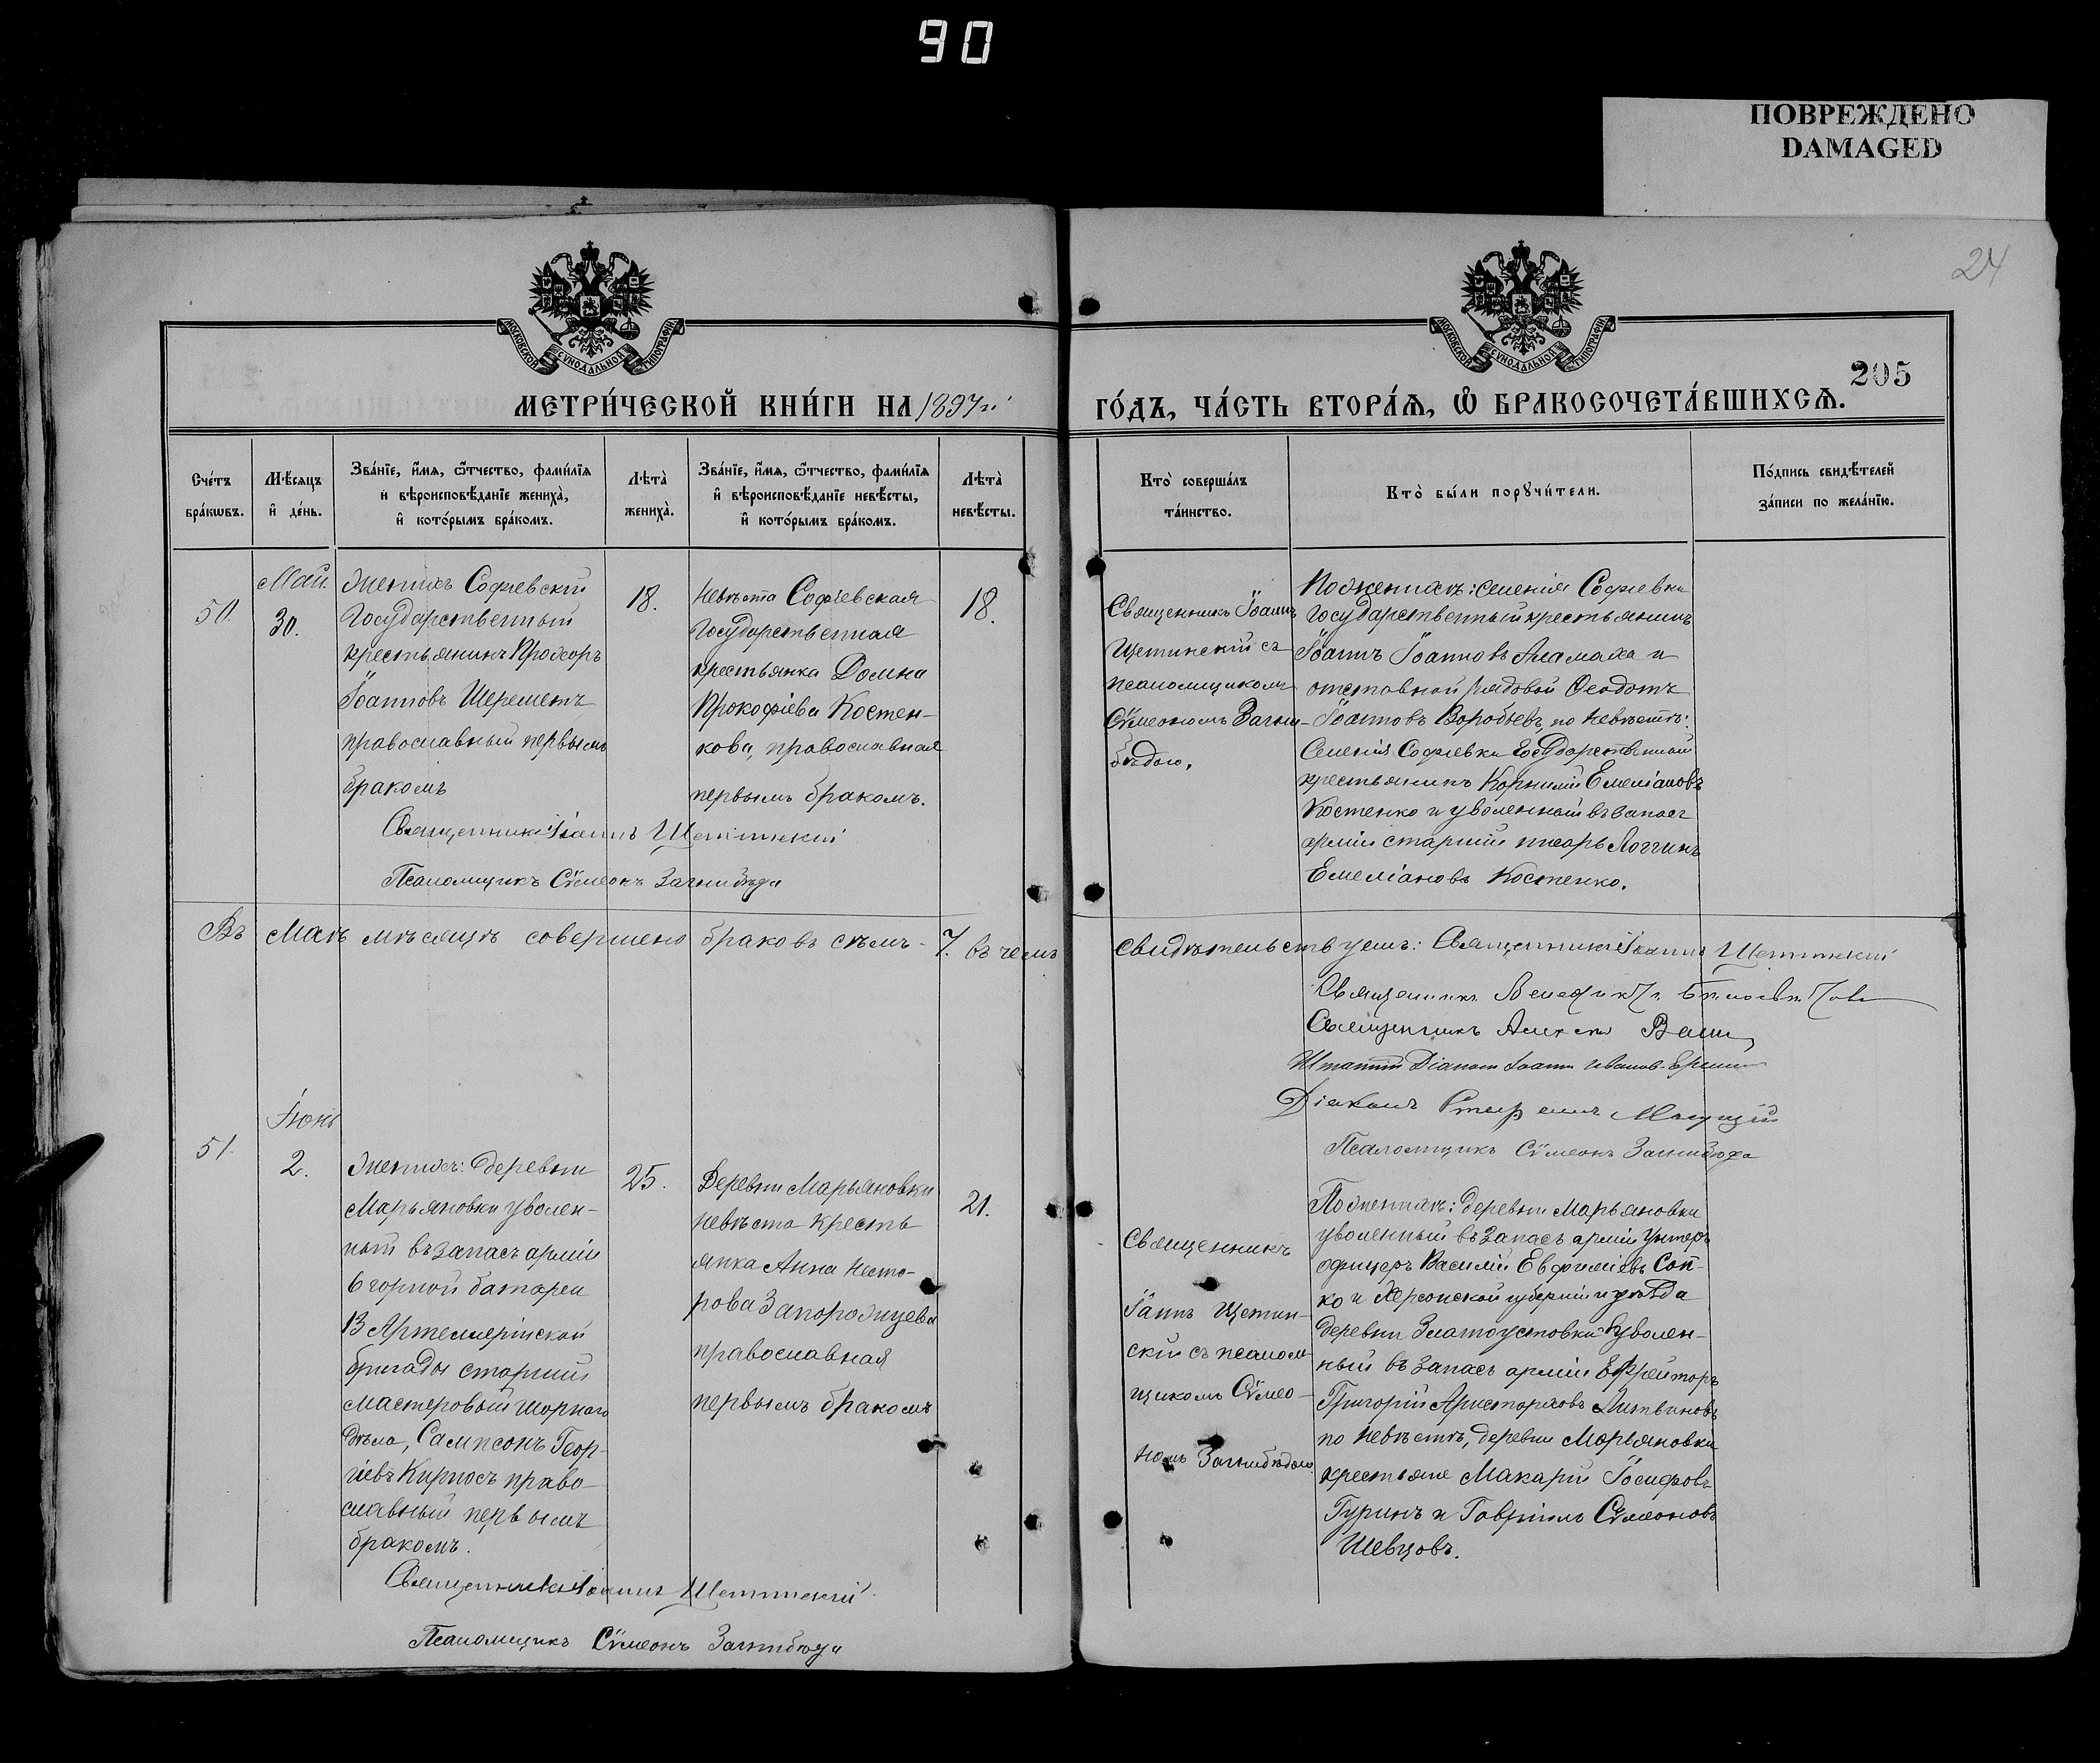 90
ПОВРЕЖДЕНО
DAMAGED
24
205
МОСКОВСКОЙ СѴНОДАЛЬНОЙ ТИПОГРАФІИ
МОСКОВСКОЙ СѴНОДАЛЬНОЙ ТИПОГРАФІИ
МЕТРИ́ЧЕСКОЙ КНИ́ГИ НА 1897й
ГО́ДЪ, ЧА́СТЬ ВТОРА́Ѧ, Ѡ҆ БРАКОСОЧЕТА́ВШИХСѦ.
Сче́тъ
бра́кѡвъ.
Мѣ́сяцъ
и҆ де́нь.
Зва́нїе, и҆́мя, ѻ҆́тчество, фами́лїя
и҆ вѣроисповѣ́данїе жениха̀,
и҆ кото́рымъ бра́комъ.
Лѣта̀
жениха̀.
Зва́нїе, и҆́мя, ѻ҆́тчество, фами́лїя
и҆ вѣроисповѣ́данїе невѣ́сты,
и҆ кото́рымъ бра́комъ.
Лѣта̀
невѣ́сты.
Кто̀ соверша́лъ
та́инство.
Кто̀ бы́ли порꙋчи́тели.
По́дпись свидѣ́телей
за́писи по жела́нїю.
50.
Май.
30.
Женихъ Софіевскій
Государственный
крестьянинъ Прохоръ
Іоанновъ Шереметъ
православный первымъ
бракомъ
18.
Невѣста Софіевская
Государственная
крестьянка Домна
Прокофіева Костен-
кова, православная
первымъ бракомъ.
18.
Священникъ Іоаннъ
Щетинскій съ
псаломщикомъ
Сѵмеономъ Загни-
бѣдою.
По женихѣ: селенія Софіевки
Государственный крестьянинъ
Іоаннъ Іоанновъ Аламаха и
отставной рядовой Ѳеодотъ
Іоанновъ Воробьевъ, по невѣстѣ:
Селенія Софіевки Государственный
крестьянинъ Корнилій Емеліановъ
Костенко и уволенный въ запасъ
арміи старшій писарь Логгинъ
Емеліановъ Костенко.
Священникъ Іоаннъ Щетинскій
Псаломщикъ Сѵмеонъ Загнибѣда
Въ Маѣ мѣсяцѣ совершено браковъ семь - 7. въ чемъ
свидѣтельствуемъ: Священникъ Іоаннъ Щетинскій
Священникъ
Священникъ Алексій
Штатный Діаконъ Іоаннъ
Діаконъ
Псаломщикъ Сѵмеонъ Загнибѣда
51.
Іюнь
2.
Женихъ: деревни
Марьяновки уволен-
ный въ запасъ арміи
6 горной батареи
13 Артиллерійской
бригады старшій
мастеровый шорнаго
дѣла, Сампсонъ Геор-
гіевъ Кирносъ право-
славный первымъ
бракомъ.
25.
Деревни Марьяновки
невѣста кресть
янка Анна Несто-
рова Запорожцева
православная
первымъ бракомъ
21.
Священникъ
Іоаннъ Щетин-
скій съ псалом-
щикомъ Сѵмео-
номъ Загнибѣдою.
По женихѣ: деревни Марьяновки
уволенный въ запасъ арміи Унтеръ
офицеръ Василій Евфиміевъ Соп-
ко и Херсонской губерніи и уѣзда
деревни Златоустовки уволен-
ный въ запасъ арміи Ефрейторъ
Григорій Аристарховъ Литвиновъ
по невѣстѣ, деревни Марьяновки
крестьяне Макарій Іосифовъ
Гуринъ и Гавріилъ Сѵмеоновъ
Шевцовъ.
Священникъ Іоаннъ Щетинскій
Псаломщикъ Сѵмеонъ Загнибѣда